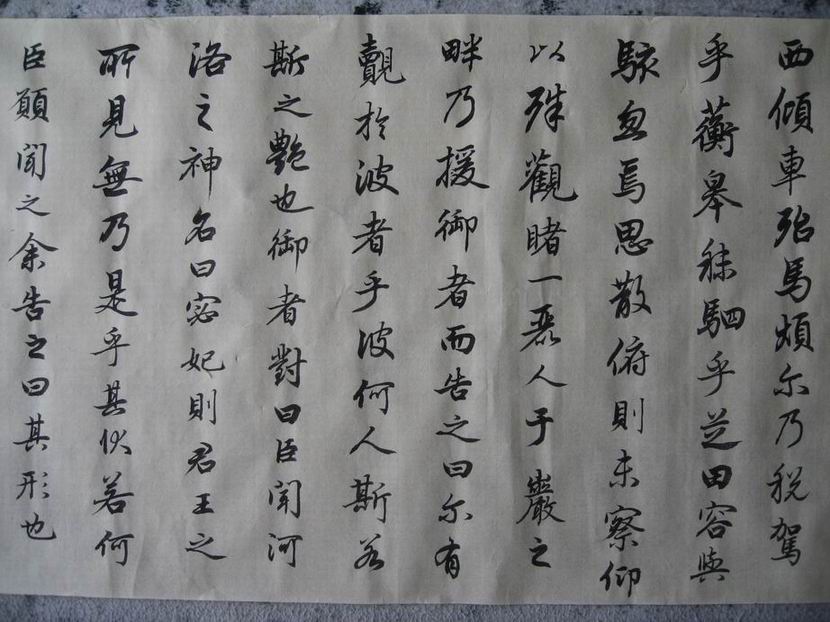 西傾車殆馬煩尓乃税駕
乎蘅皋秣駟乎芝田容與
駭忽焉思散俯則未察仰
以殊觀睹一麗人于巖之
畔乃援御者而告之曰尓有
覿於彼者乎彼何人斯若
斯之艷也御者對曰臣聞河
洛之神名曰宓妃則君王之
所見無乃是乎其狀若何
臣願聞之余告之曰其形也